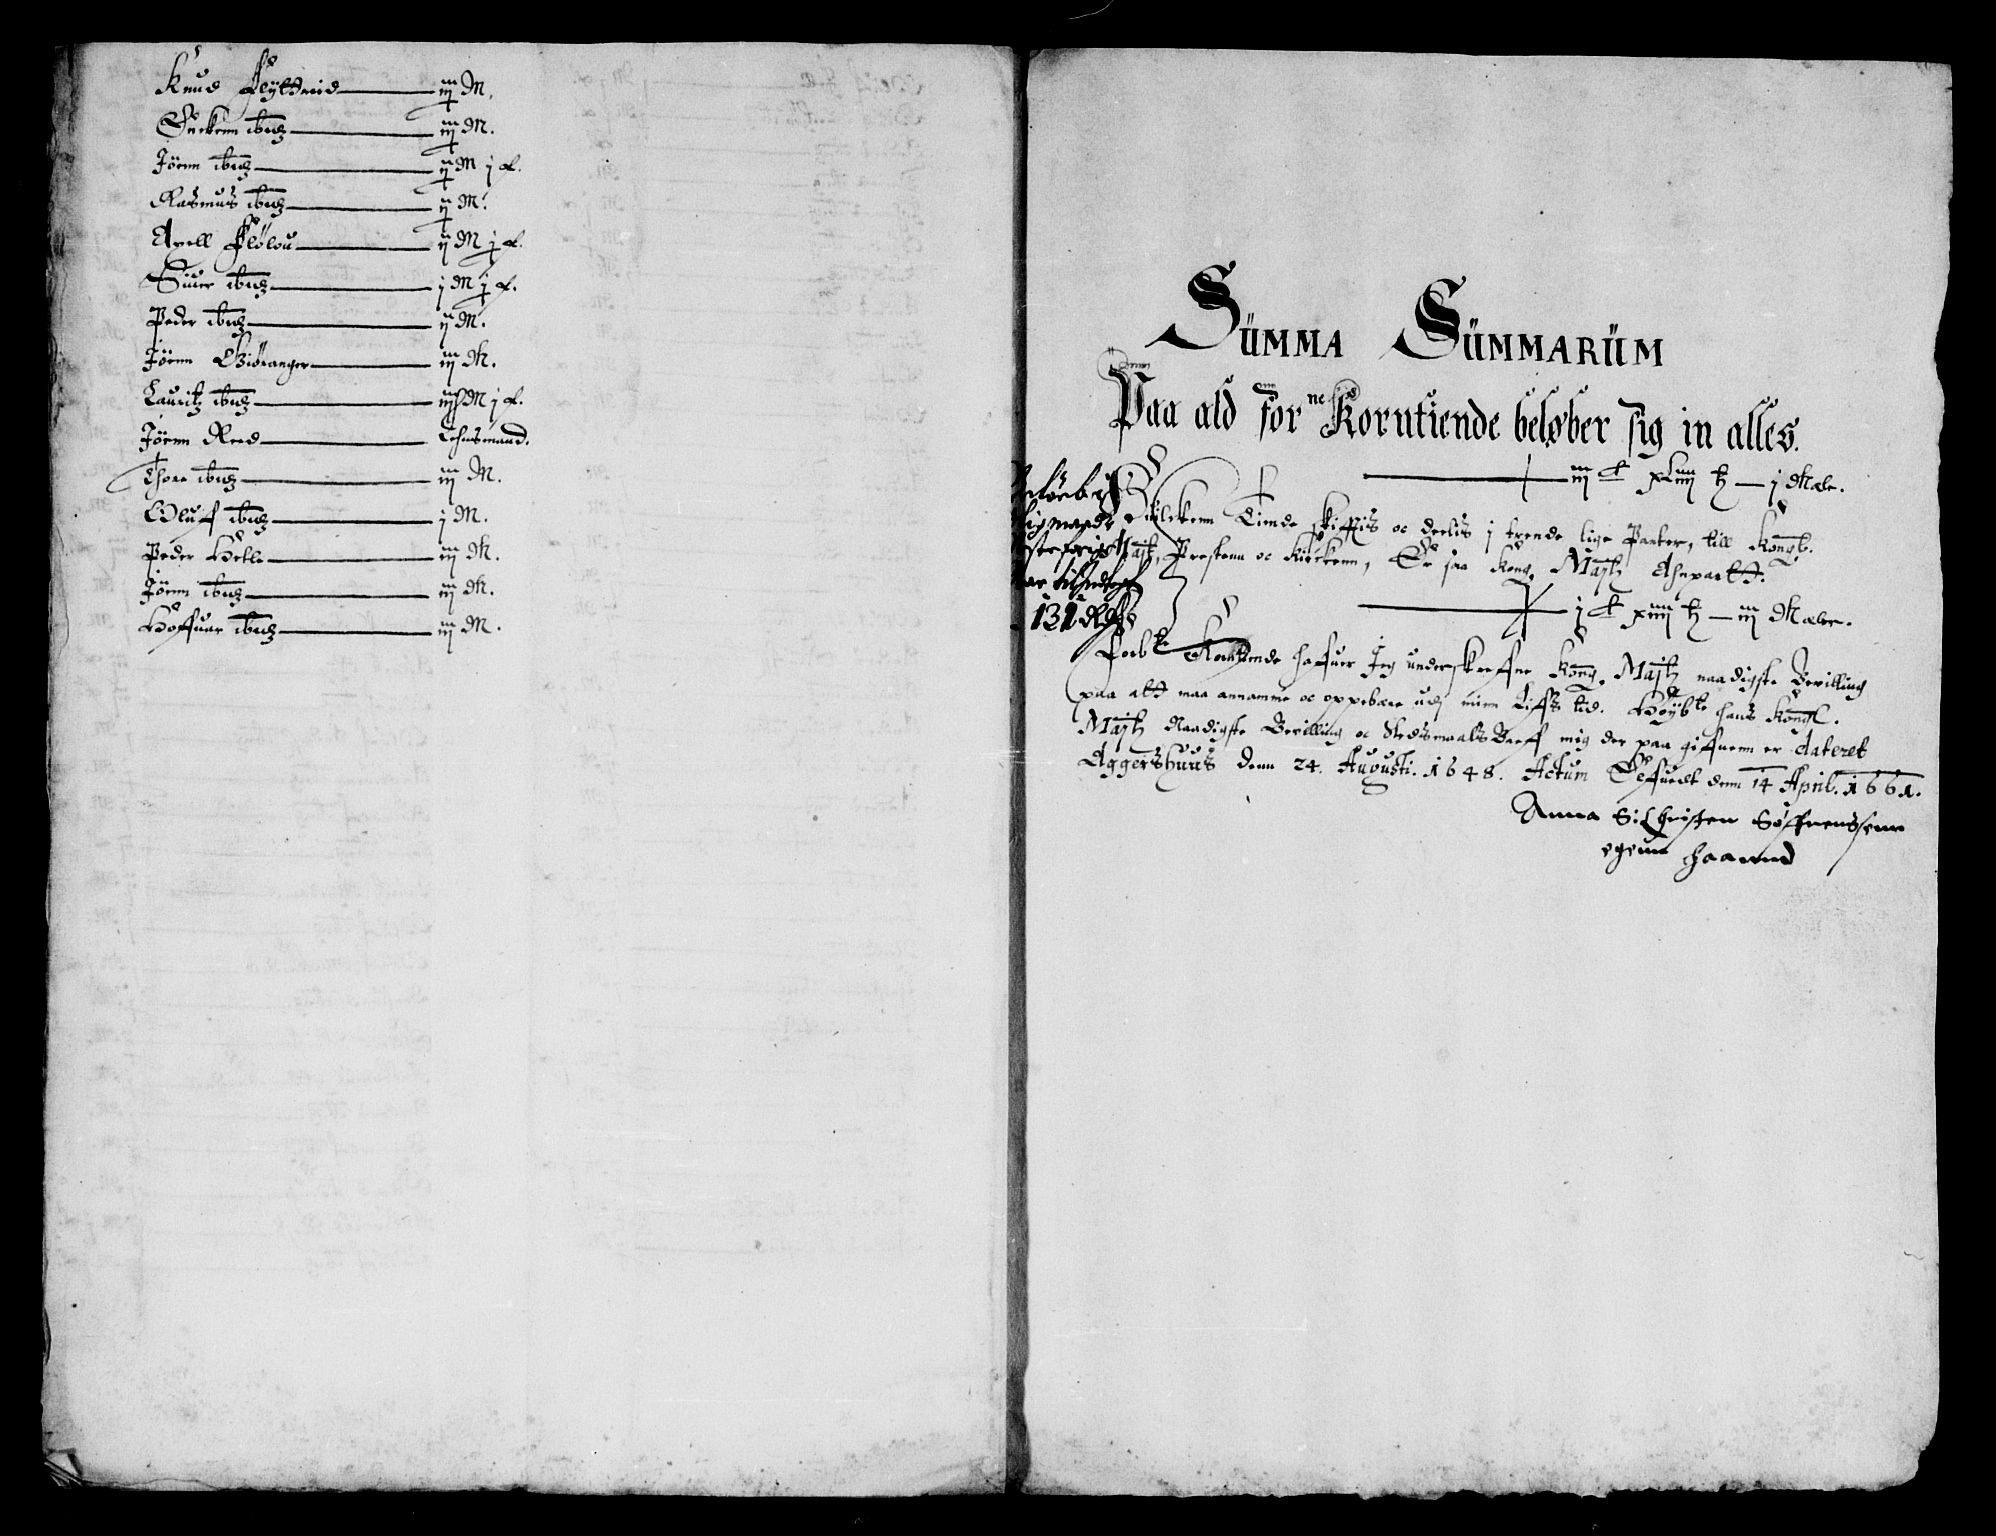 Knud Fløttreid — iij M.
Enckenn ibid — iij M.
Jörnn ibid — ij M j f.
Rasmus ibid — ij M.
Axell Flölou — ij M j f.
Siuer ibid — j M j f.
Peder ibid — ij M.
Jörnn Giöranger — iij M.
Lauritz ibid — iij M j f.
Jörnn Reed — Lehnsmand.
Thore ibid — iij M.
Oluf ibid — j M.
Peder Hetle — iij M.
Jörnn ibid — iij M.
Hoffuar ibid — iij M.
Sümma Sümmarüm
Paa ald for ne Korntiende beløber sig in alles.
— iij xLiiij — j Mæle.
Huilckenn Tiende skifftis oc deelis j trende lige Parter, till Kongl.
Majtz, Prestenn oc Kirckenn, Er saa Kong. Majtz Anpartt.
— j xiiij — iij Mæler.
131 Rdr
Korntiende haffuer Jeg underskreffne Kong. Majtz naadigste Bevilling
paa att maa annamme oc oppebære udj minn Liffs tid. Høybte hans Kongl.
Majtz Naadigste Bevilling oc StedsmaalsBreff mig der paa giffuenn er dateret
Aggershuus denn 24. Augusti. 1648. Actum denn 14 April. 1661.
Anna Sl Christen Søffrenssenn
egenn haannd